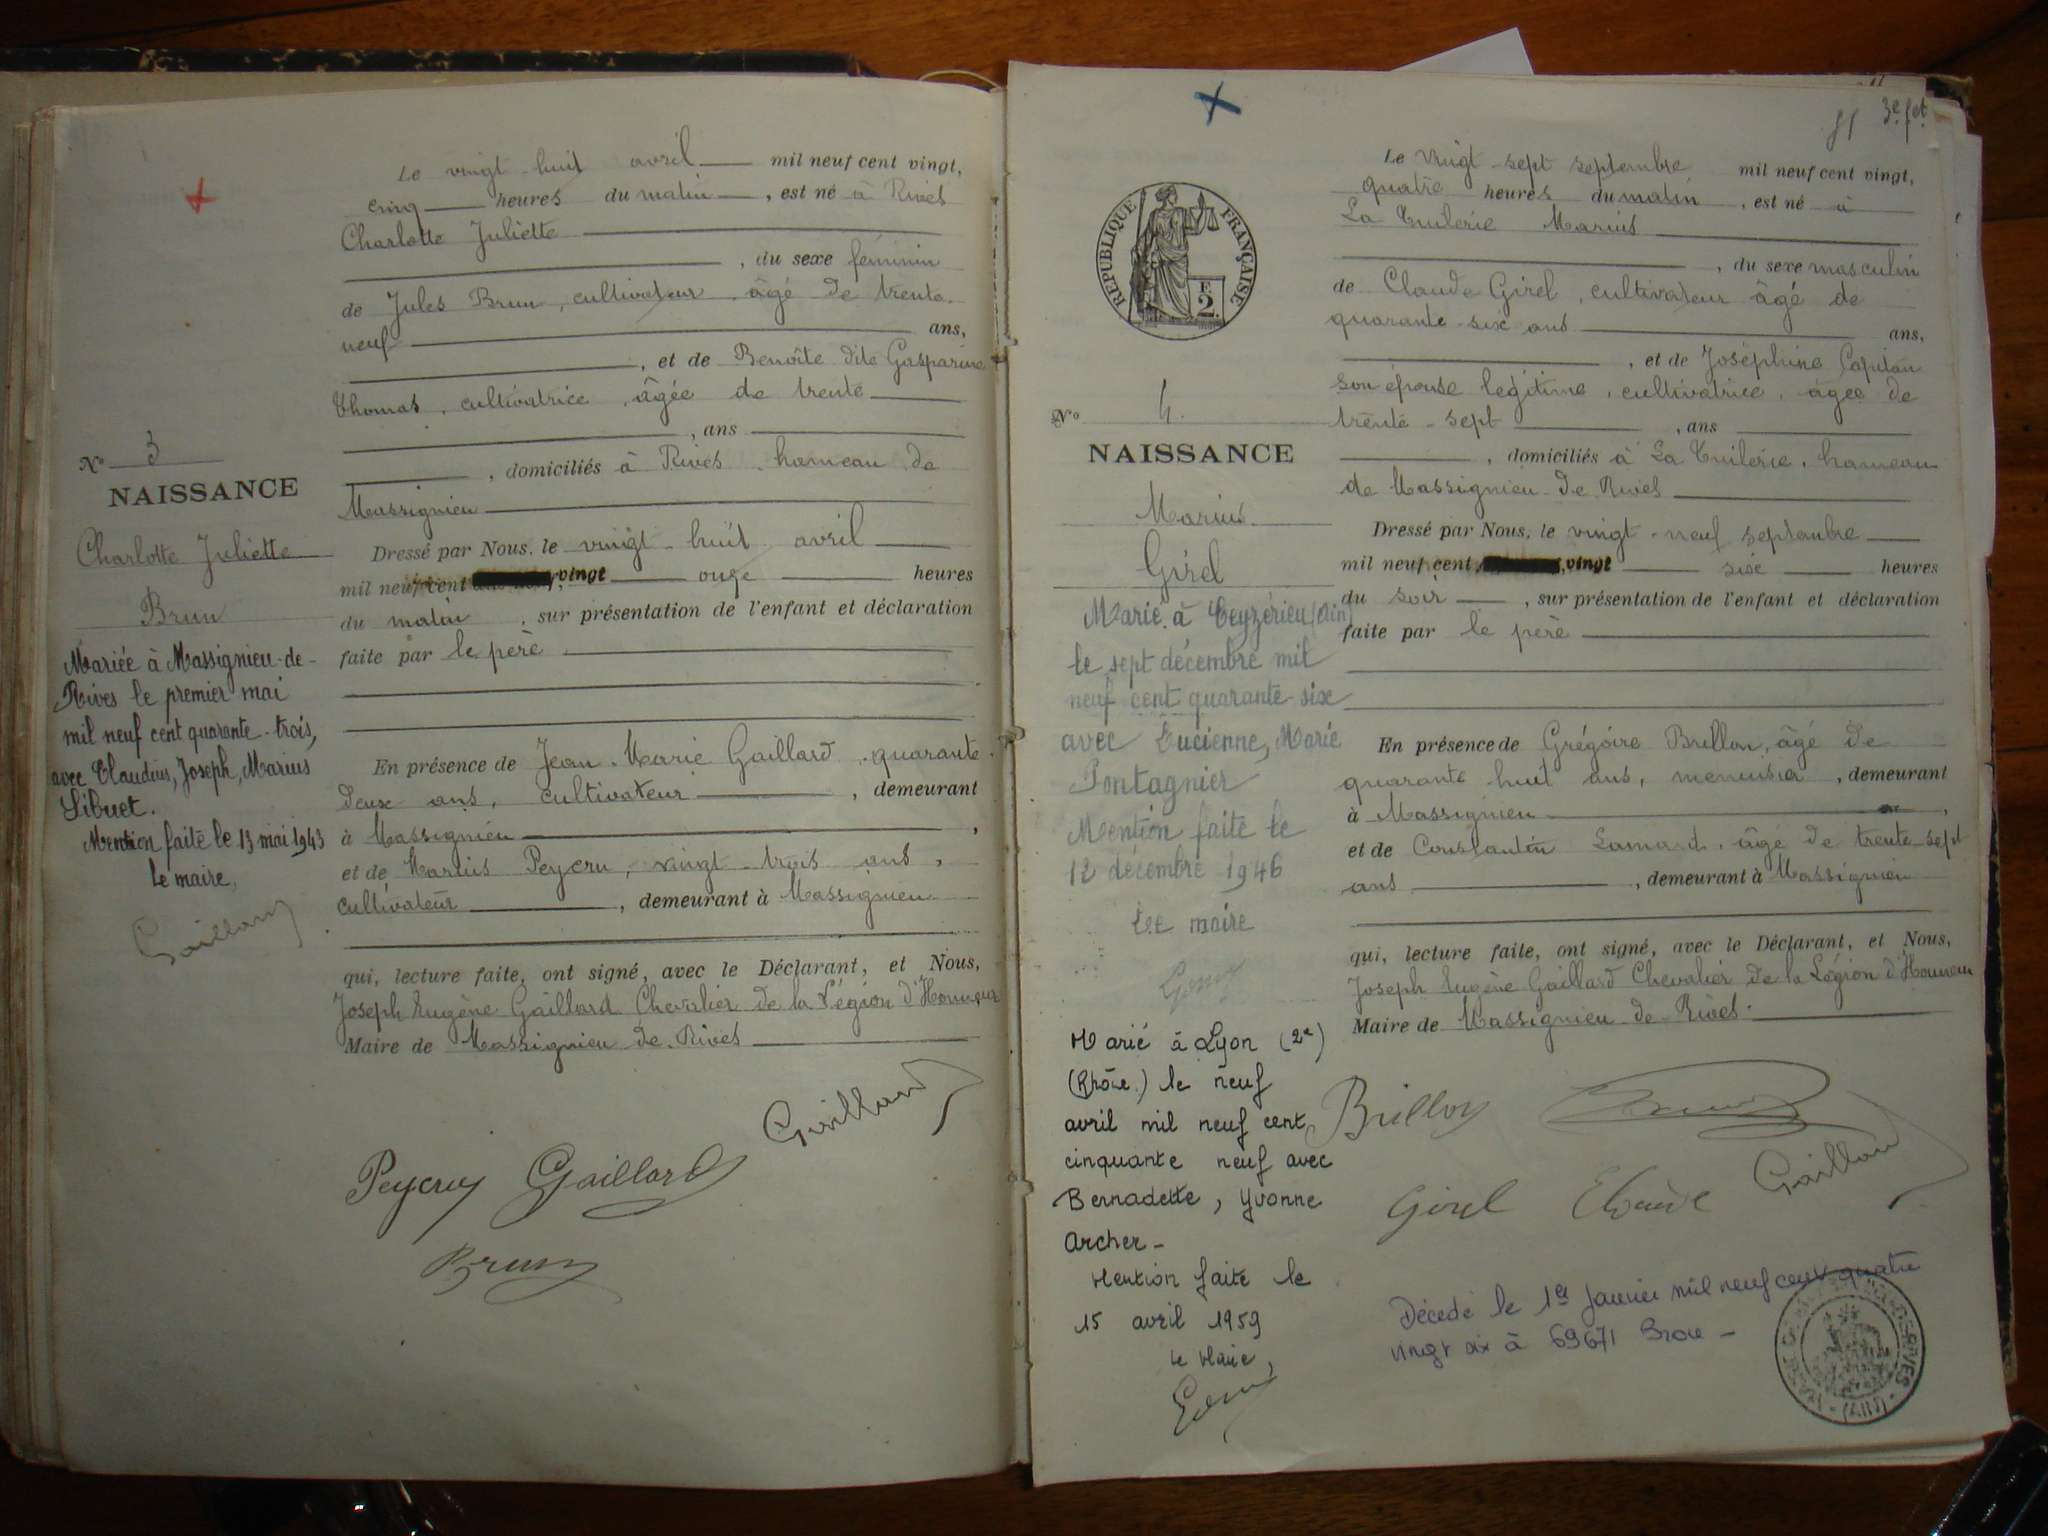 Le vingt-huit avril mil neuf cent vingt,
cinq heures du matin, est né à Rives
Charlotte Juliette
, du sexe féminin
de Jules Brun, cultivateur, âgé de trente-
neuf ans,
, et de Benoîte dite Gasparine
Thomas, cultivatrice, âgée de trente
, ans
, domiciliés à Rives, hameau de
Massignieu
Dressé par Nous, le vingt-huit avril
mil neuf cent vingt onze heures
du matin, sur présentation de l'enfant et déclaration
faite par le père
En présence de Jean-Marie Gaillard, quarante-
deux ans, cultivateur, demeurant
à Massignieu,
et de Marius Peycru, vingt-trois ans,
cultivateur, demeurant à Massignieu
qui, lecture faite, ont signé, avec le Déclarant, et Nous,
Joseph Eugène Gaillard Chevalier de la Légion d'Honneur
Maire de Massignieu-de-Rives
Gaillard
Peycru Gaillard
Brun
N° 3
NAISSANCE
Charlotte Juliette
Brun
Mariée à Massignieu-de-
Rives le premier mai
mil neuf cent quarante-trois,
avec Claudius, Joseph, Marius
Sibuet.
Mention faite le 13 mai 1943
Le maire,
Gaillard
3e fet
RÉPUBLIQUE FRANÇAISE
F.
2.
Le vingt-sept septembre mil neuf cent vingt,
quatre heures du matin, est né à
La Tuilerie Marius
, du sexe masculin
de Claude Girel, cultivateur âgé de
quarante-six ans ans,
, et de Joséphine Capitan
son épouse légitime, cultivatrice, âgée de
trente-sept, ans
, domiciliés à La Tuilerie, hameau
de Massignieu-de-Rives
Dressé par Nous, le vingt-neuf septembre
mil neuf cent vingt six heures
du soir, sur présentation de l'enfant et déclaration
faite par le père
En présence de Grégoire Brillon, âgé de
quarante huit ans, menuisier, demeurant
à Massignieu,
et de Constantin Lamard, âgé de trente-sept
ans, demeurant à Massignieu
qui, lecture faite, ont signé, avec le Déclarant, et Nous,
Joseph Eugène Gaillard Chevalier de la Légion d'Honneur
Maire de Massignieu-de-Rives.
Brillon
Girel Claude Gaillard
Décédé le 1er janvier mil neuf cent quatre
vingt six à 69671 Bron -
N° 4.
NAISSANCE
Marius
Girel
Marié à Ceyzérieu (Ain)
le sept décembre mil
neuf cent quarante-six
avec Lucienne, Marie
Pontagnier
Mention faite le
12 décembre 1946
Le maire
Marié à Lyon (2e)
(Rhône) le neuf
avril mil neuf cent
cinquante neuf avec
Bernadette, Yvonne
Archer -
Mention faite le
15 avril 1959
Le Maire,